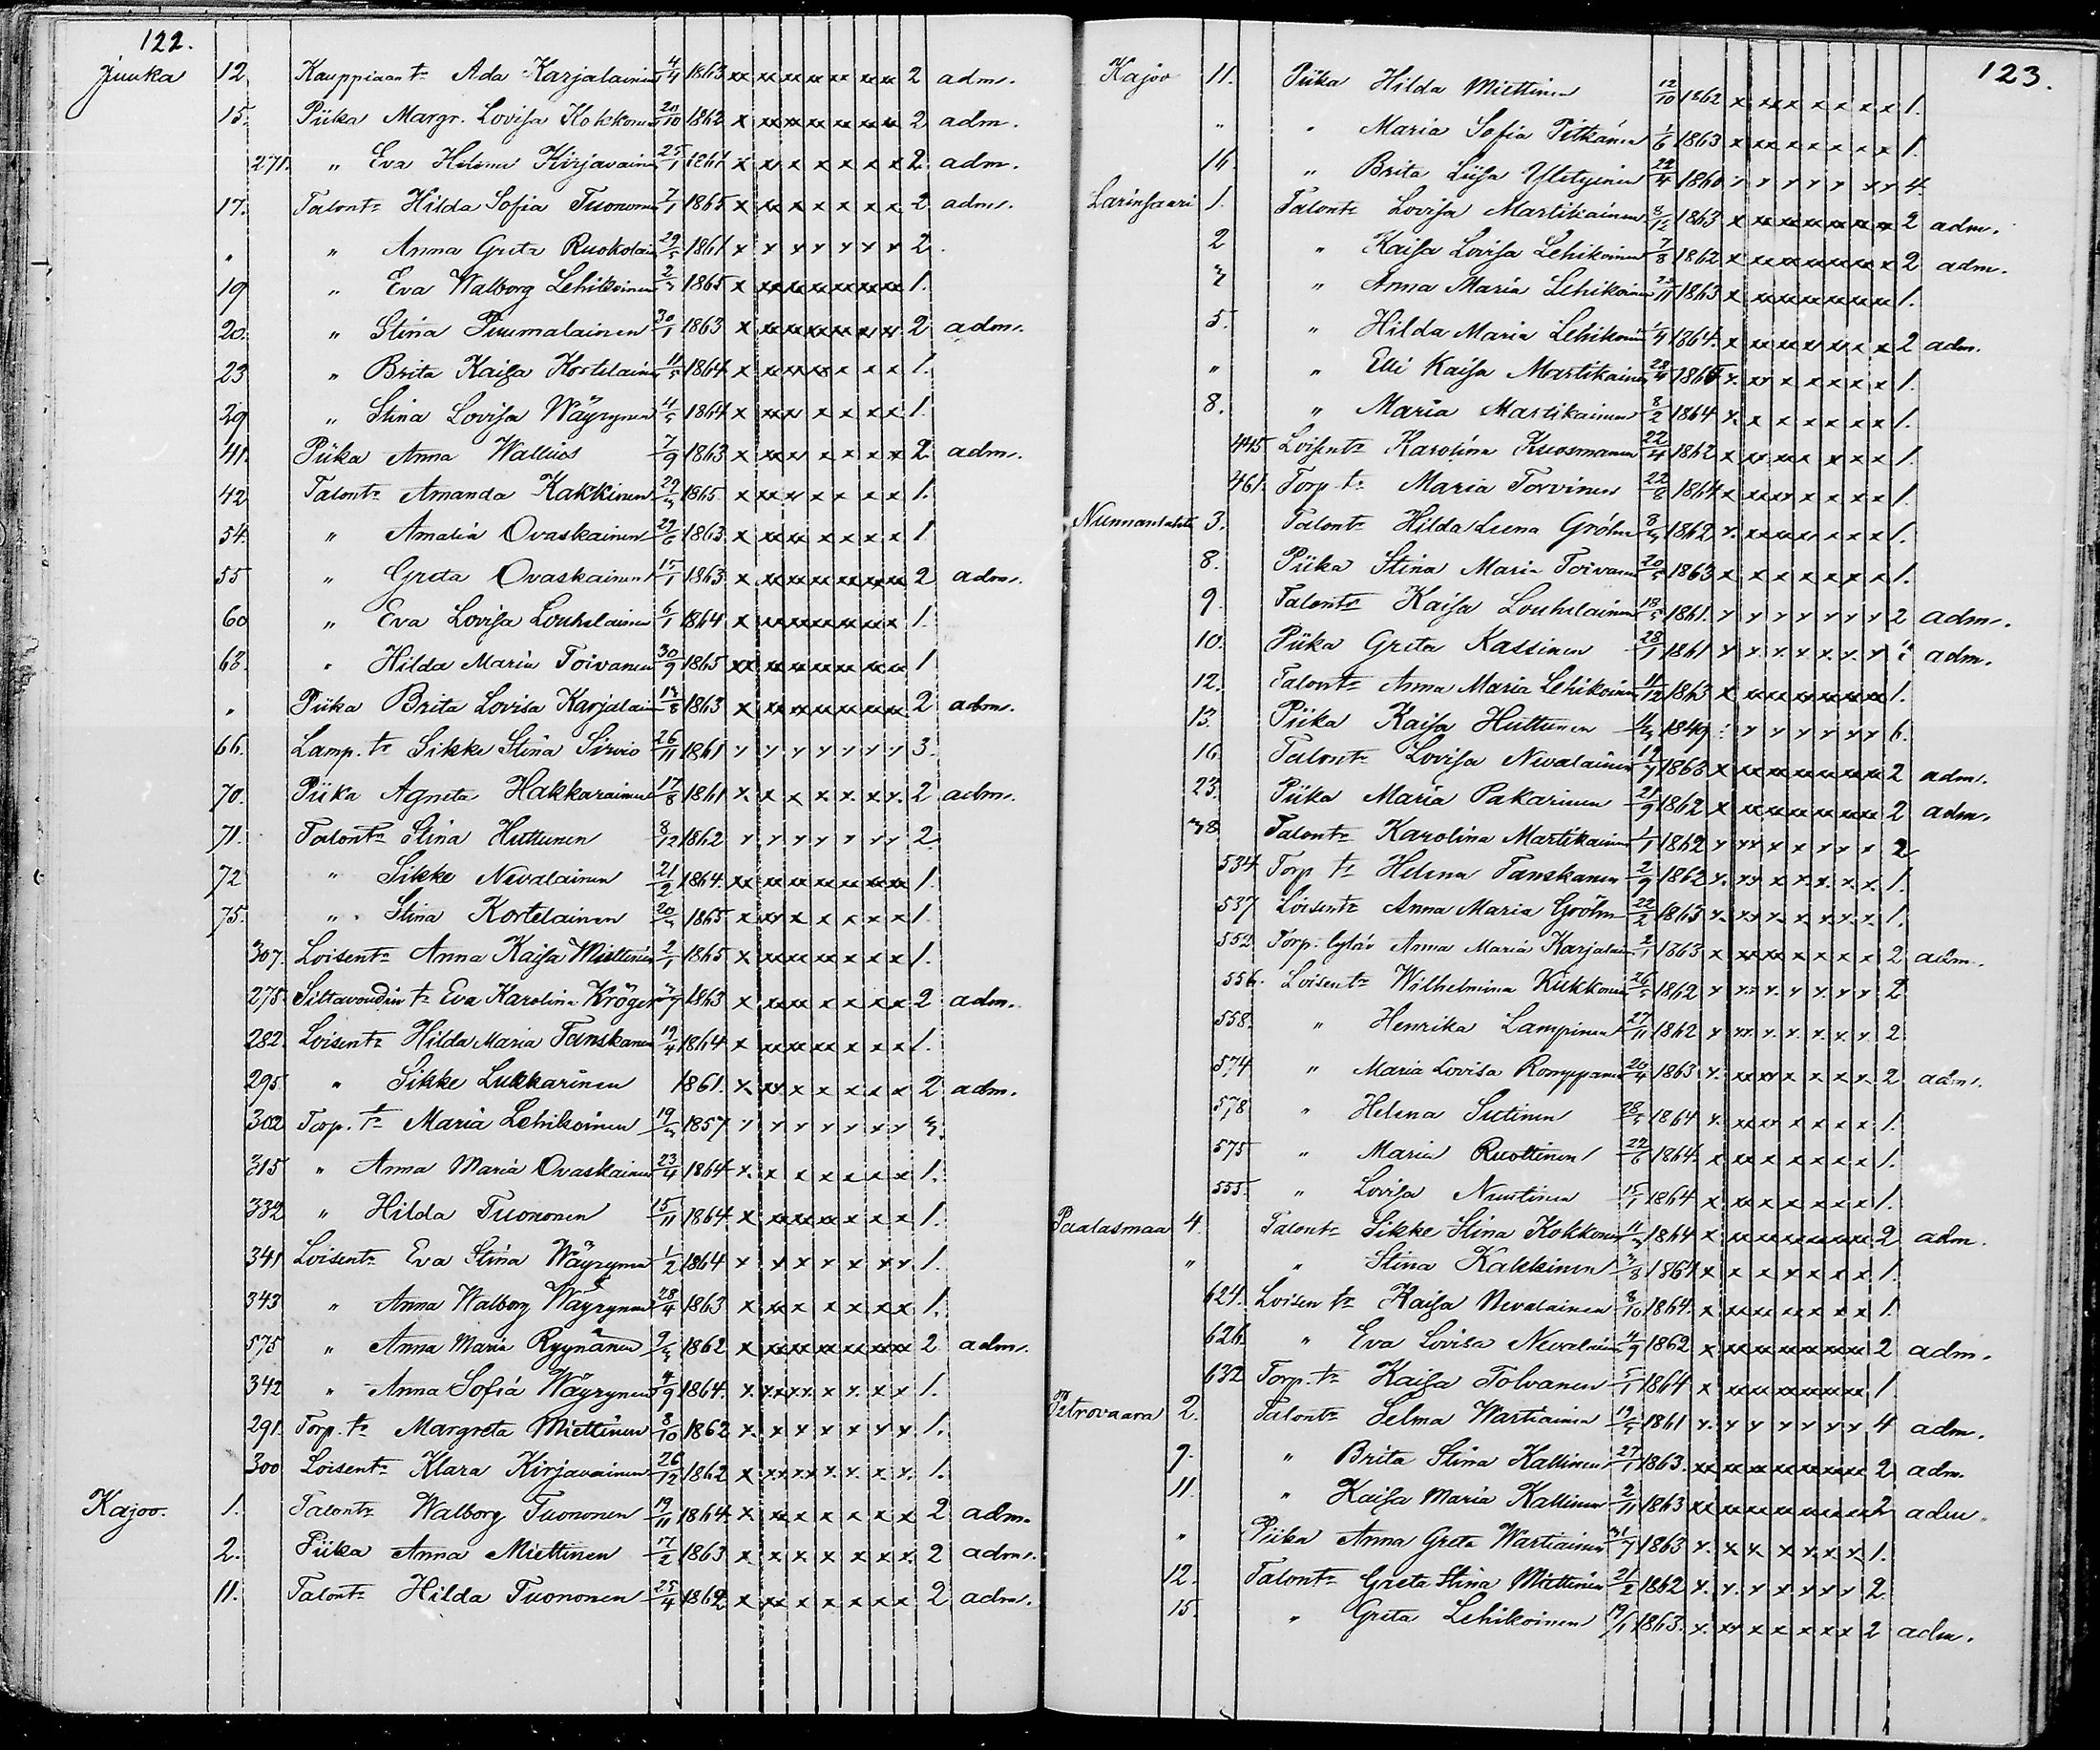 122.
Juuka 12 Kauppiaan tr Ada Karjalainen 4/4 1863 xx xx xx xx xx xx 2 adm.
15. Piika Margr. Lovisa Kokkonen 20/10 1862 x xx xx xx xx xx xx 2 adm.
271. " Eva Helena Kirjavainen 25/1 1861 x xx x x x x x 2 adm.
17. Talontr Hilda Sofia Tuononen 7/1 1865 x xx x x x x x 2 adm.
" " Anna Greta Ruokolain 29/5 1861 x x x x x x x 2.
19 " Eva Walborg Lehikoinen 1865 x xx xx xx xx xx xx 1.
20. " Stina Puumalainen 30/1 1863 x xx xx xx xx xx xx 2 adm.
23 " Brita Kaisa Kortelain 11/5 1864 x xx xx x x x x 1.
29 " Stina Lovisa Wäyrynen 4/5 1864 x xx x x x x x 1.
41. Piika Anna Wallius 7/9 1863 x xx x x x x x 2 adm.
42 Talontr Amanda Kakkinen 1865 x xx x x x x x 1.
54. " Amalia Ovaskainen 29/6 1863 x xx x x x x x 1
55 " Greta Ovaskainen 15/1 1863 x xx xx xx xx xx xx 2 adm.
60 " Eva Lovisa Louhelainen 6/1 1864 x xx xx xx xx xx x 1.
63. " Hilda Maria Toivanen 30/9 1865 xx xx xx xx xx xx xx 1
" Piika Brita Lovisa Karjalain 1863 x xx xx xx xx xx xx 2 adm.
66. Lamp. tr Sikke Stina Sirvio 26/11 1861 x x x x x x x 3.
70. Piika Agneta Hakkarainen 17/8 1861 x x x x x x x 2 adm.
71. Talontr Stina Huttunen 8/12 1862 x x x x x x x 2
72 " Sikke Nevalainen 21/2 1864 xx xx xx xx xx xx xx 1.
75. " Stina Kortelainen 1865 x xx x x x x x 1.
307. Loisentr Anna Kaisa Miettinen 2/1 1865 x xx xx x x x x 1.
278. Siltavoudin tr Eva Karolina Kröger 1863 x xx xx x x x x 2 adm.
282. Loisentr Hilda Maria Tanskanen 19/4 1864 x xx xx x x x x 1.
295. " Sikke Lukkarinen 1861. x xx x x x x x 2 adm.
302 Torp. tr Maria Lehikoinen 1857 x x x x x x x 3.
315 " Anna Maria Ovaskainen 23/4 1864 x x x x x x x 1.
332 " Hilda Tuononen 15/11 1864 x xx xx x x x x 1.
341 Loisentr Eva Stina Wäyrynen 1/2 1864 x x x x x x x 1.
343 " Anna Walborg Wäyrynen 28/4 1863 x xx x x x x x 1.
575 " Anna Maria Ryynänen 1862 x xx xx xx xx xx xx 2 adm.
342 " Anna Sofia Wäyrynen 4/9 1864. x xx xx x x x x 1.
291. Torp. tr Margreta Miettinen 8/10 1862 x x x x x x x 1.
300 Loisentr Klara Kirjavainen 26/12 1862 x xx xx x x x x 1.
Kajoo. 1. Talontr Walborg Tuononen 19/11 1864 x xx x x x x x 2 adm.
2. Piika Anna Miettinen 17/2 1863 x x x x x x x 2 adm.
11. Talontr Hilda Tuononen 25/4 1862 x xx x x x x x 2 adm.
123.
Kajoo 11. Piika Hilda Miettinen 12/10 1862 x xx x x x x x 1.
" " Maria Sofia Pitkänen 1/6 1863 x xx x x x x x 1.
16. " Brita Liisa Yletyinen 22/4 1860 x x x x x x x 4.
Larinsaari 1. Talontr Lovisa Martikainen 8/12 1863 x xx xx xx xx xx xx 2 adm.
2 " Kaisa Lovisa Lehikoinen 7/8 1862 x xx xx xx xx xx x 2 adm.
" Anna Maria Lehikoinen 1863 x xx xx xx xx xx xx 1.
5. " Hilda Maria Lehikoin 1/4 1864. x xx xx xx xx x x 2 adm.
" " Elli Kaisa Martikainen 28/4 1865 x xx x x x x x 1.
8. " Maria Martikainen 8/2 1864 x x x x x x x 1.
445. Loisentr Karolina Kuosmanen 22/4 1862 x xx xx x x x x 1.
461. Torp. tr Maria Torvinen 22/8 1864 x xx xx x x x x 1.
Nunnanlahti 3. Talontr Hilda Leena Gröhn 1862 x xx xx x x x x 1.
8. Piika Stina Maria Toivanen 20/5 1863 x x x x x x x 1.
9. Talontr Kaisa Louhelainen 18/5 1861. x x x x x x x 2 adm.
10. Piika Greta Kassinen 28/1 1861 x x x x x x x adm.
12. Talontr Anna Maria Lehikoinen 11/12 1863 x xx xx xx xx xx xx 1.
13. Piika Kaisa Huttunen 1849 x x x x x x 6.
16 Talontr Lovisa Nevalainen 1863 x xx xx xx xx xx xx 2 adm.
23. Piika Maria Pakarinen 21/9 1862 x xx xx xx xx xx xx 2 adm.
38 Talontr Karolina Martikainen 1/1 1862 x xx x x x x x 2
534. Torp. tr Helena Tanskanen 2/9 1862 x xx x x x x x 1.
537 Loisentr Anna Maria Gröhn 22/2 1863 x xx x x x x x 1.
552. Torp. lytär Anna Maria Karjalain 2/1 1863 x xx xx x x x x 2 adm.
556. Loisentr Wilhelmina Kukkonen 26/5 1862 x xx x x x x x 2
558. " Henrika Lampinen 27/11 1862 x xx x x x x x 2
574 " Maria Lovisa Romppanen 20/4 1863 x xx xx x x x x 2 adm.
578 " Helena Sutinen 28/5 1864 x xx xx x x x x 1.
575 " Maria Ruottinen 22/6 1864. x xx x x x x x 1.
555. " Lovisa Nuutinen 15/1 1864 x xx x x x x x 1.
Paalasmaa 4. Talontr Sikke Stina Kokkonen 1864 x xx xx xx xx xx xx 2 adm.
" " Stina Kakkinen 1864 x x x x x x x 1.
624. Loisen tr Kaisa Nevalainen 8/10 1864. x xx xx x x x x 1.
626. " Eva Lovisa Nevalainen 4/9 1862 x xx xx xx xx xx xx 2 adm.
632 Torp. tr Kaisa Tolvanen 5/1 1864 x xx xx xx xx xx xx 1
Petrovaara 2. Talontr Selma Wartiainen 19/5 1861 x x x x x x x 4 adm.
9. " Brita Stina Kallinen 27/1 1863. xx xx xx xx xx xx xx 2 adm.
11. " Kaisa Maria Kallinen 2/11 1863 xx xx xx xx xx xx xx 2 adm.
" Piika Anna Greta Wartiainen 1863 x x x x x x x 1.
12. Talontr Greta Stina Miettinen 21/2 1862 x x x x x x x 2
15. " Greta Lehikoinen 19/1 1863. x xx x x x x x 2 adm.